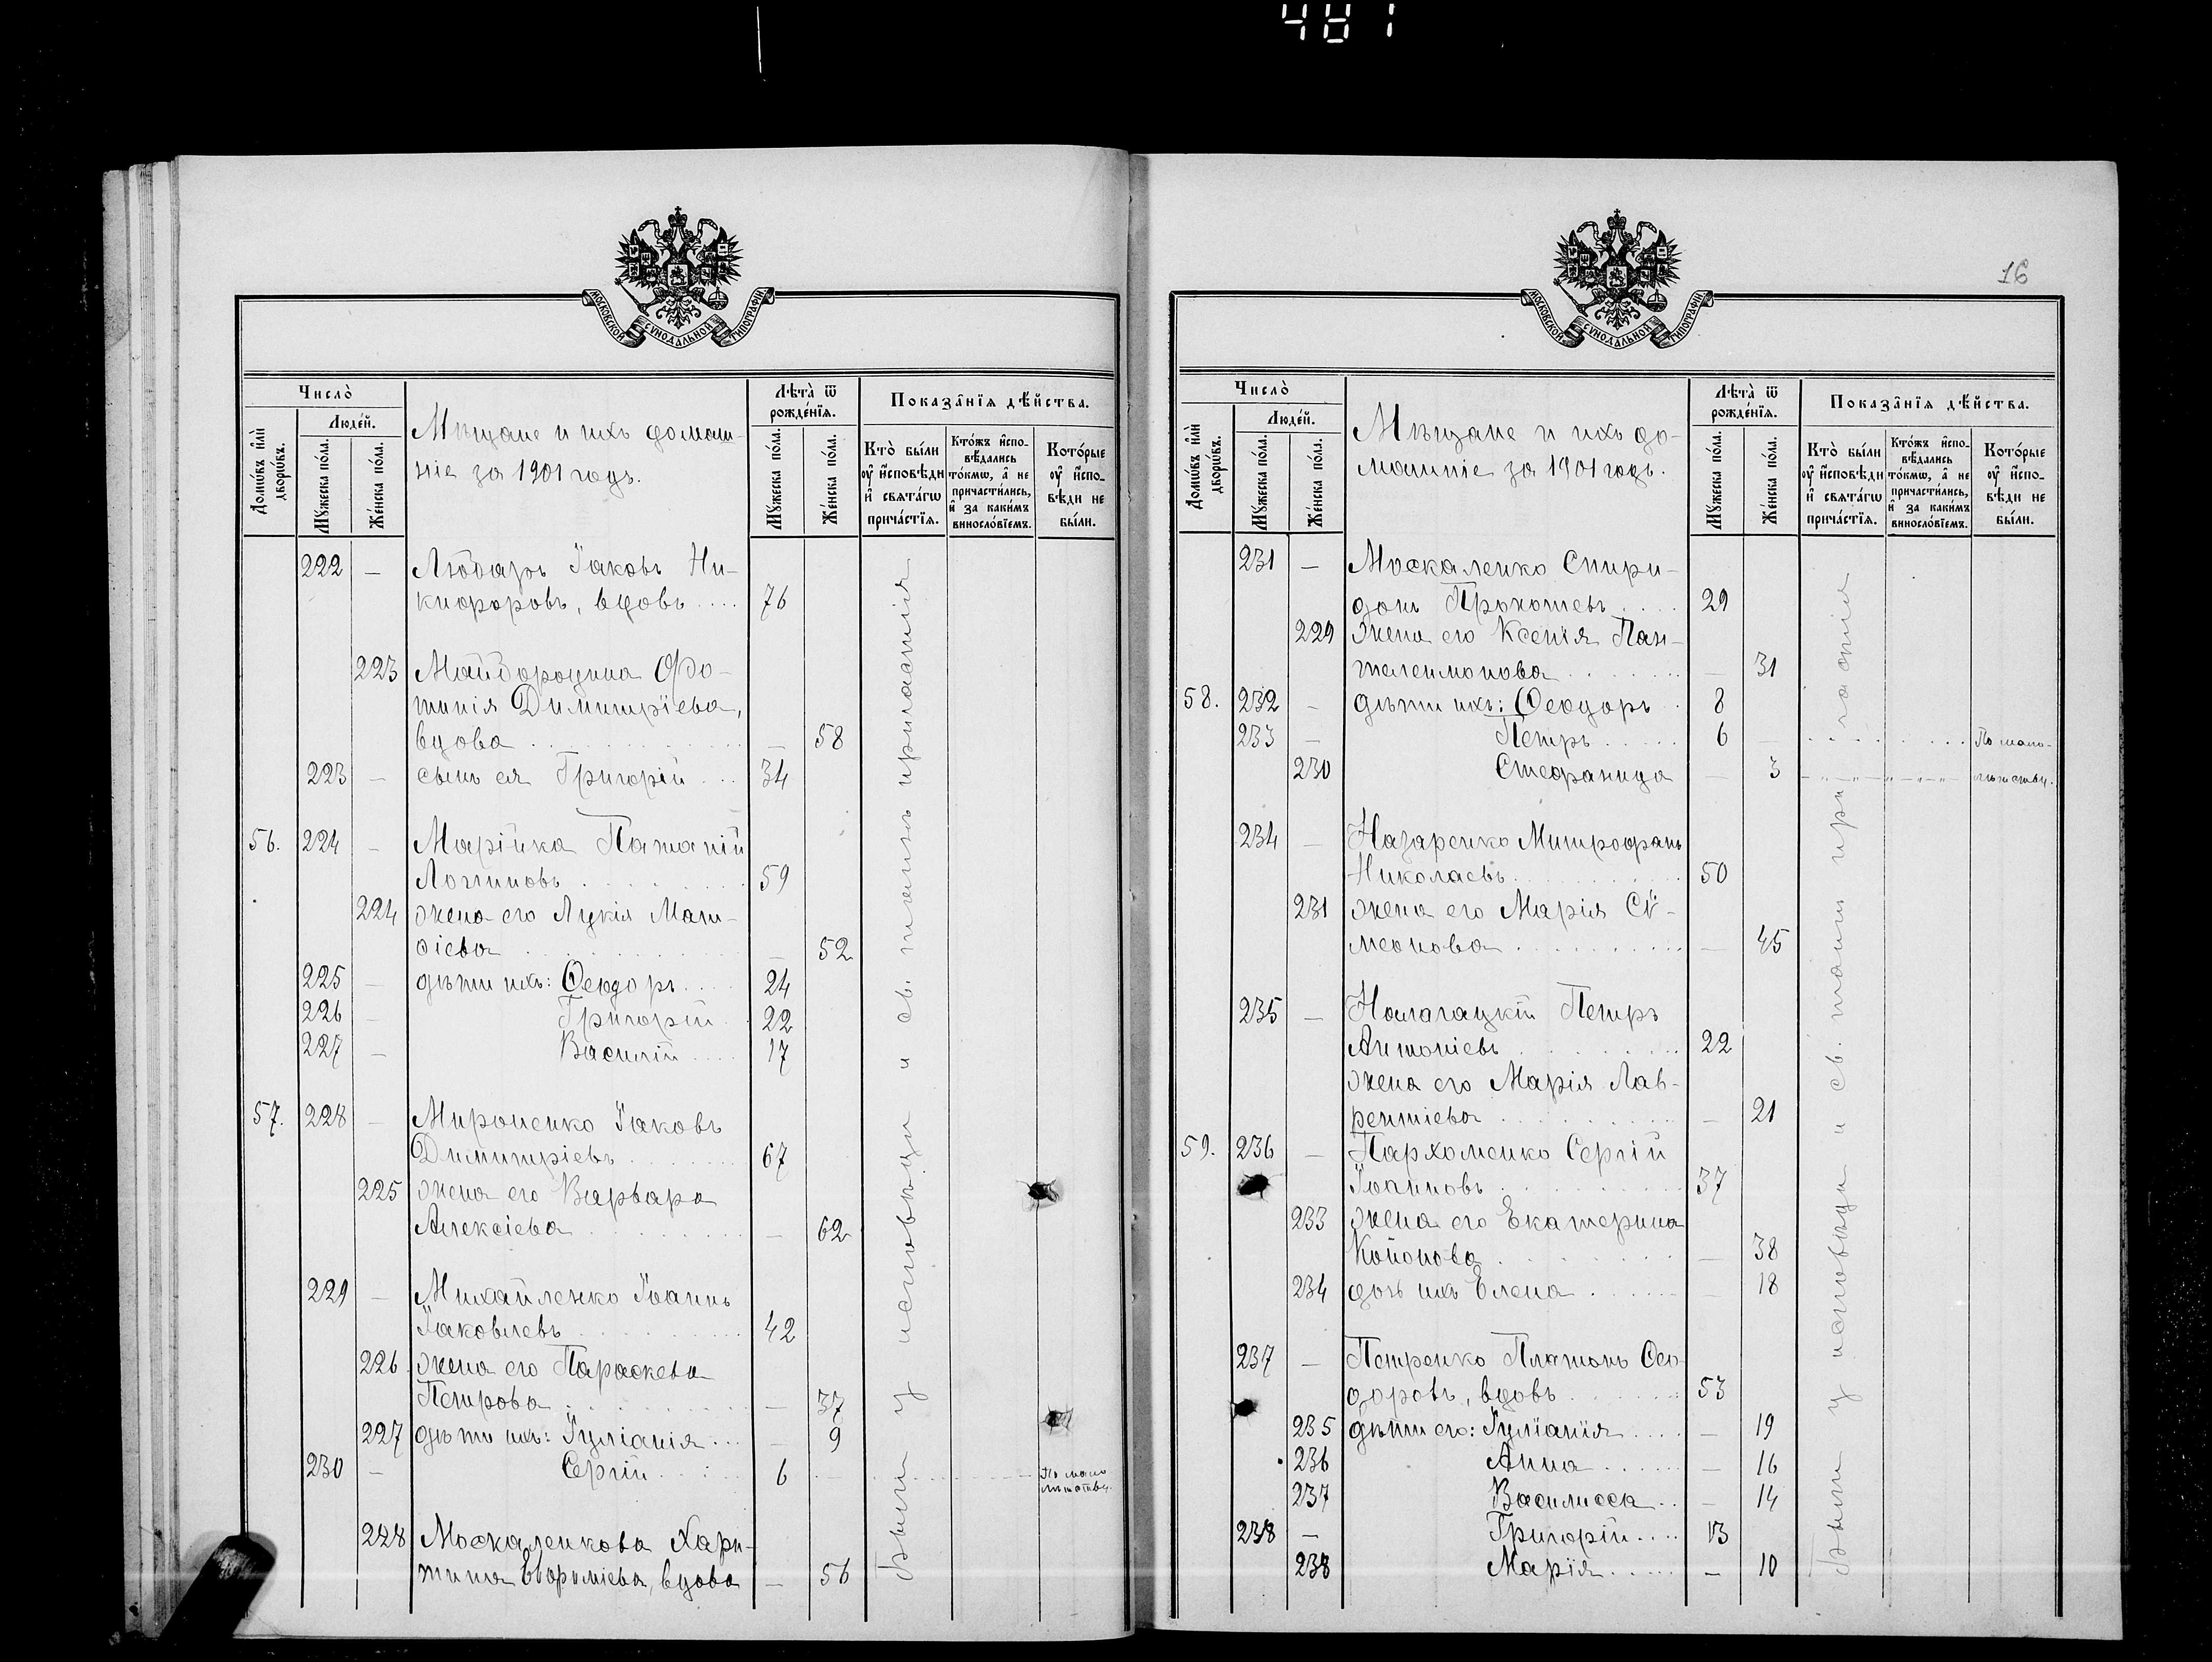 481
МОСКОВСКОЙ СѴНОДАЛЬНОЙ ТИПОГРАФІИ
Число̀
Домѡ́въ и҆лѝ дворѡ́въ.
Люде́й.
Мꙋ́жеска по́ла.
Же́нска по́ла.
Мѣщане и ихъ домаш-
ніе за 1901 годъ.
Лѣта̀ ѿ рожде́нїѧ.
Мꙋ́жеска по́ла.
Же́нска по́ла.
Показа̂нїѧ дѣ́йства.
Кто̀ бы́ли
ᲂу҆ и҆́сповѣди
и҆ свѧта́гѡ
прича́стїѧ.
Кто́жъ и҆спо-
вѣ́дались
то́кмѡ, а҆ не
причасти́лись,
и҆ за каки́мъ
винослѡ́вїемъ.
Кото́рые
ᲂу҆ и҆спо-
вѣди не
бы́ли.
222 — Любарь Іаковъ Ни-
кифоровъ, вдовъ .... 76
223 Майбородина Фо-
тинія Димитріева,
вдова — 58
223 — сынъ ея Григорій ... 34
56. 224 — Марійка Патапій
Логгиновъ 59
224 жена его Лукія Мат-
ѳіева — 52
225 — дѣти ихъ: Ѳеодоръ .... 24
226 — Григорій 22
227 — Василій .... 17
57. 228 — Мироненко Іаковъ
Димитріевъ 67
225 жена его Варвара
Алексіева — 62
229 — Михайленко Іоаннъ
Іаковлевъ 42
226 жена его Параскева
Петрова — 37
227 дѣти ихъ: Іуліанія ... — 9
230 — Сергій 6 По мало
лѣтству.
228 Москаленкова Хари-
тина Евѳиміева, вдова — 56
Были у исповѣди и св. таинъ причастія
16
МОСКОВСКОЙ СѴНОДАЛЬНОЙ ТИПОГРАФІИ
Число̀
Домѡ́въ и҆лѝ дворѡ́въ.
Люде́й.
Мꙋ́жеска по́ла.
Же́нска по́ла.
Мѣщане и ихъ до-
машніе за 1901 годъ.
Лѣта̀ ѿ рожде́нїѧ.
Мꙋ́жеска по́ла.
Же́нска по́ла.
Показа̂нїѧ дѣ́йства.
Кто̀ бы́ли
ᲂу҆ и҆́сповѣди
и҆ свѧта́гѡ
прича́стїѧ.
Кто́жъ и҆спо-
вѣ́дались
то́кмѡ, а҆ не
причасти́лись,
и҆ за каки́мъ
винослѡ́вїемъ.
Кото́рые
ᲂу҆ и҆спо-
вѣди не
бы́ли.
231 — Москаленко Спири-
донъ Прокопіевъ 29
229 жена его Ксенія Пан-
телеимонова — 31
58. 232 — дѣти ихъ: Ѳеодоръ 8
233 — Петръ 6 — По мало-
230 Стефанида — 3 лѣтству.
234 — Назаренко Митрофанъ
Николаевъ 50
231 жена его Марія Сѵ-
меонова — 45
235 — Петръ
Антоніевъ 22
жена его Марія Лав-
рентіева — 21
59. 236 — Пархоменко Сергій
Іоанновъ 37
233 жена его Екатерина
Кононова — 38
234 дочь ихъ Елена — 18
237 — Петренко Платонъ Ѳео-
доровъ, вдовъ 53
235 дѣти его: Іуліанія — 19
236 Анна — 16
237 Василисса — 14
238 — Григорій 13
238 Марія — 10
Были у исповѣди и св. таинъ причастія